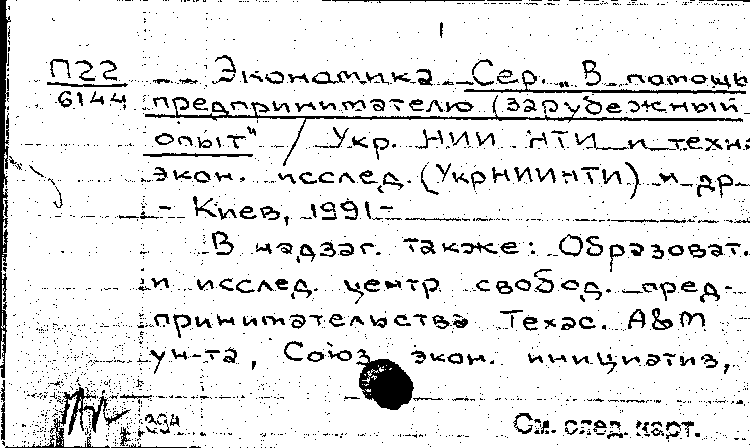 1
П22 -- Экономика Сер. „В помощь
6144 предпринимателю (зарубежный
опыт" / Укр. НИИ НТИ и техн.
экон. исслед. (УкрНИИНТИ) и др
- Киев, 1991-
В надзаг. также: Образоват.
и исслед. центр свобод. пред-
принимательства Техас. A&M
ун-та, Союз экон. инициатив,
394 См. след. карт.